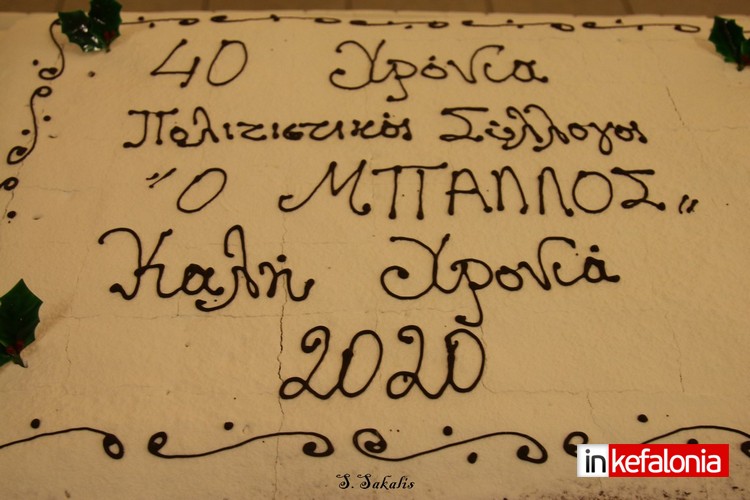 40 Χρόνια
Πολιτιστικός Σύλλογος
"Ο ΜΠΑΛΛΟΣ"
Καλή Χρονιά
2020
inkefalonia
S.Sakalis